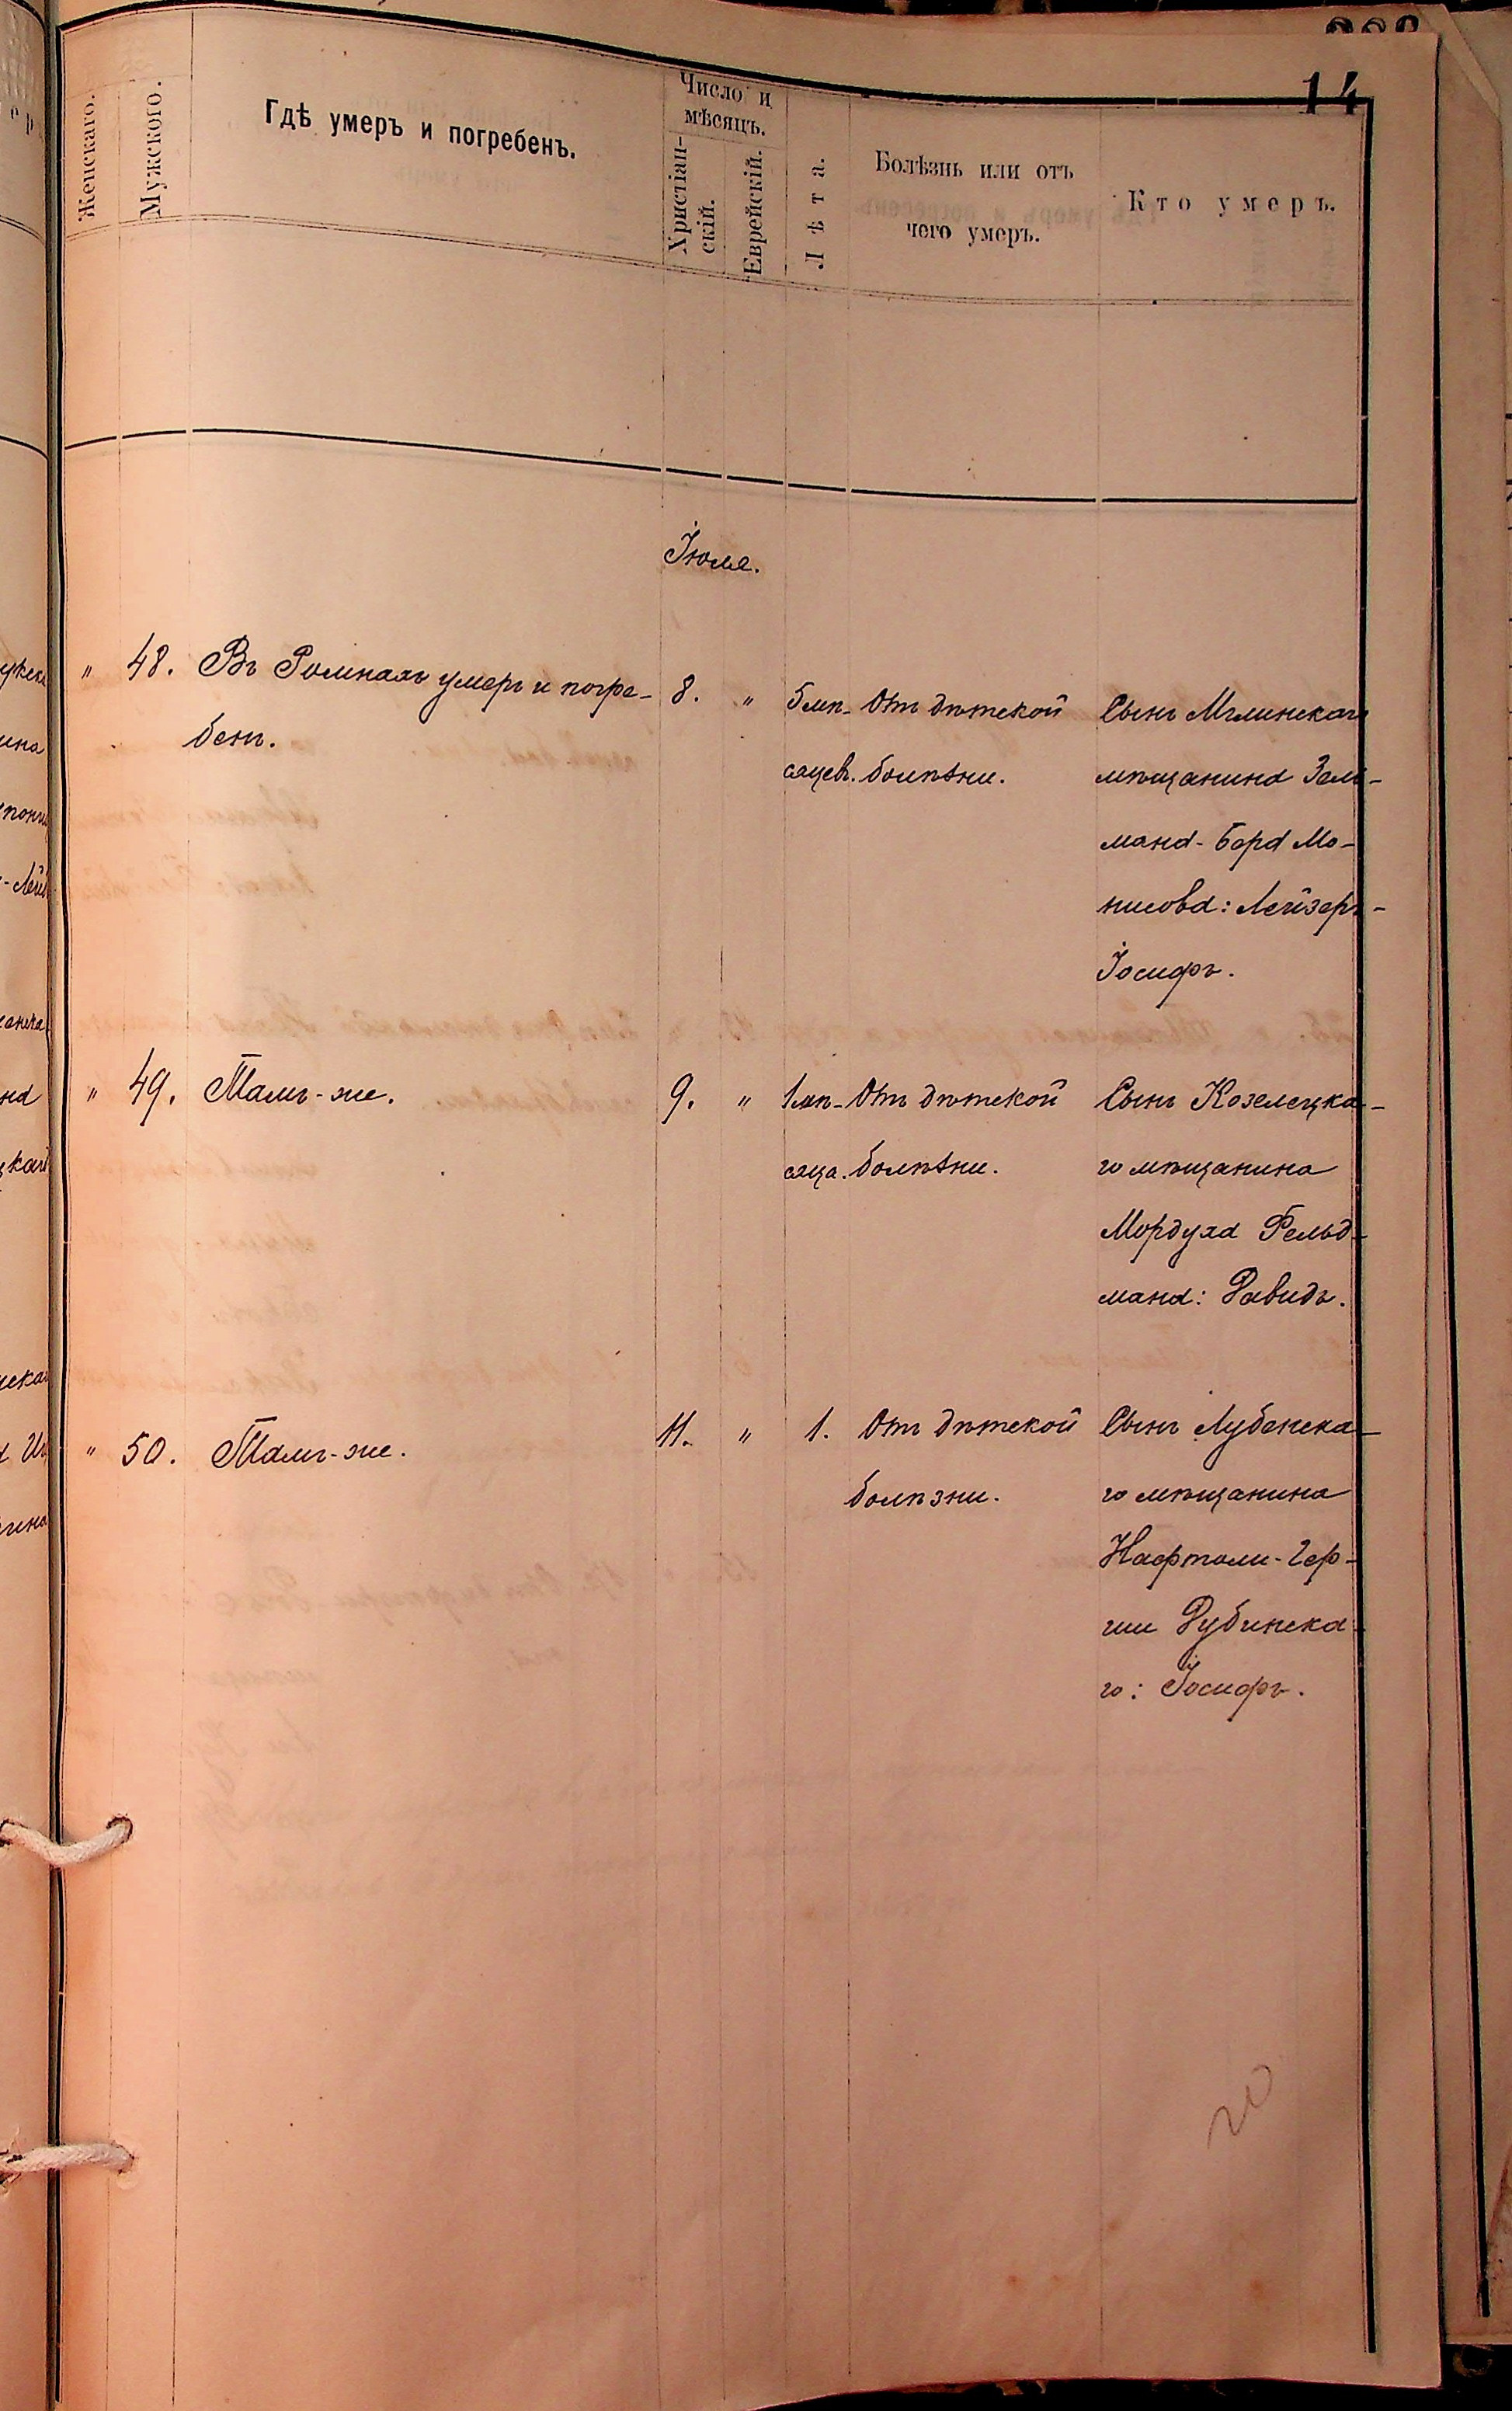 14
Женскаго.
Мужского.
Гдѣ умеръ и погребенъ.
Число и
мѣсяцъ.
Христіан-
скій.
Еврейскій.
Лѣта.
Болѣзнь или отъ
чего умеръ.
Кто умеръ.
Іюля.
" 48. Въ Ромнахъ умеръ и погре-
бенъ.
8. "
5 мѣ-
сяцев.
Отъ дѣтской
болѣзни.
Сынъ Мглинскаго
мѣщанина Зель-
мана-Бора Мо-
нисова: Лейзеръ-
Іосифъ.
" 49. Тамъ-же.
9. "
1 мѣ-
сяца.
Отъ дѣтской
болѣзни.
Сынъ Козелецка-
го мѣщанина
Мордуха Фельд-
мана: Давидъ.
" 50. Тамъ-же.
11. " 1.
Отъ дѣтской
болѣзни.
Сынъ Лубенска-
го мѣщанина
Нафтоли-Гер-
ши Дубинска-
го: Іосифъ.
20